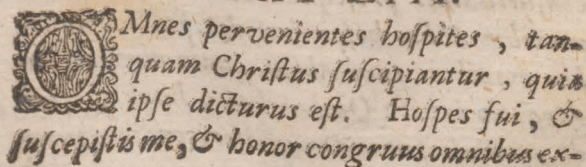 OMnes pervenientes hoſpites, tan-
quam Chriſtus ſuſcipiantur, quia
ipſe dicturus eſt. Hoſpes fui, &
ſuſcepiſtis me, & honor congruus omnibus ex-